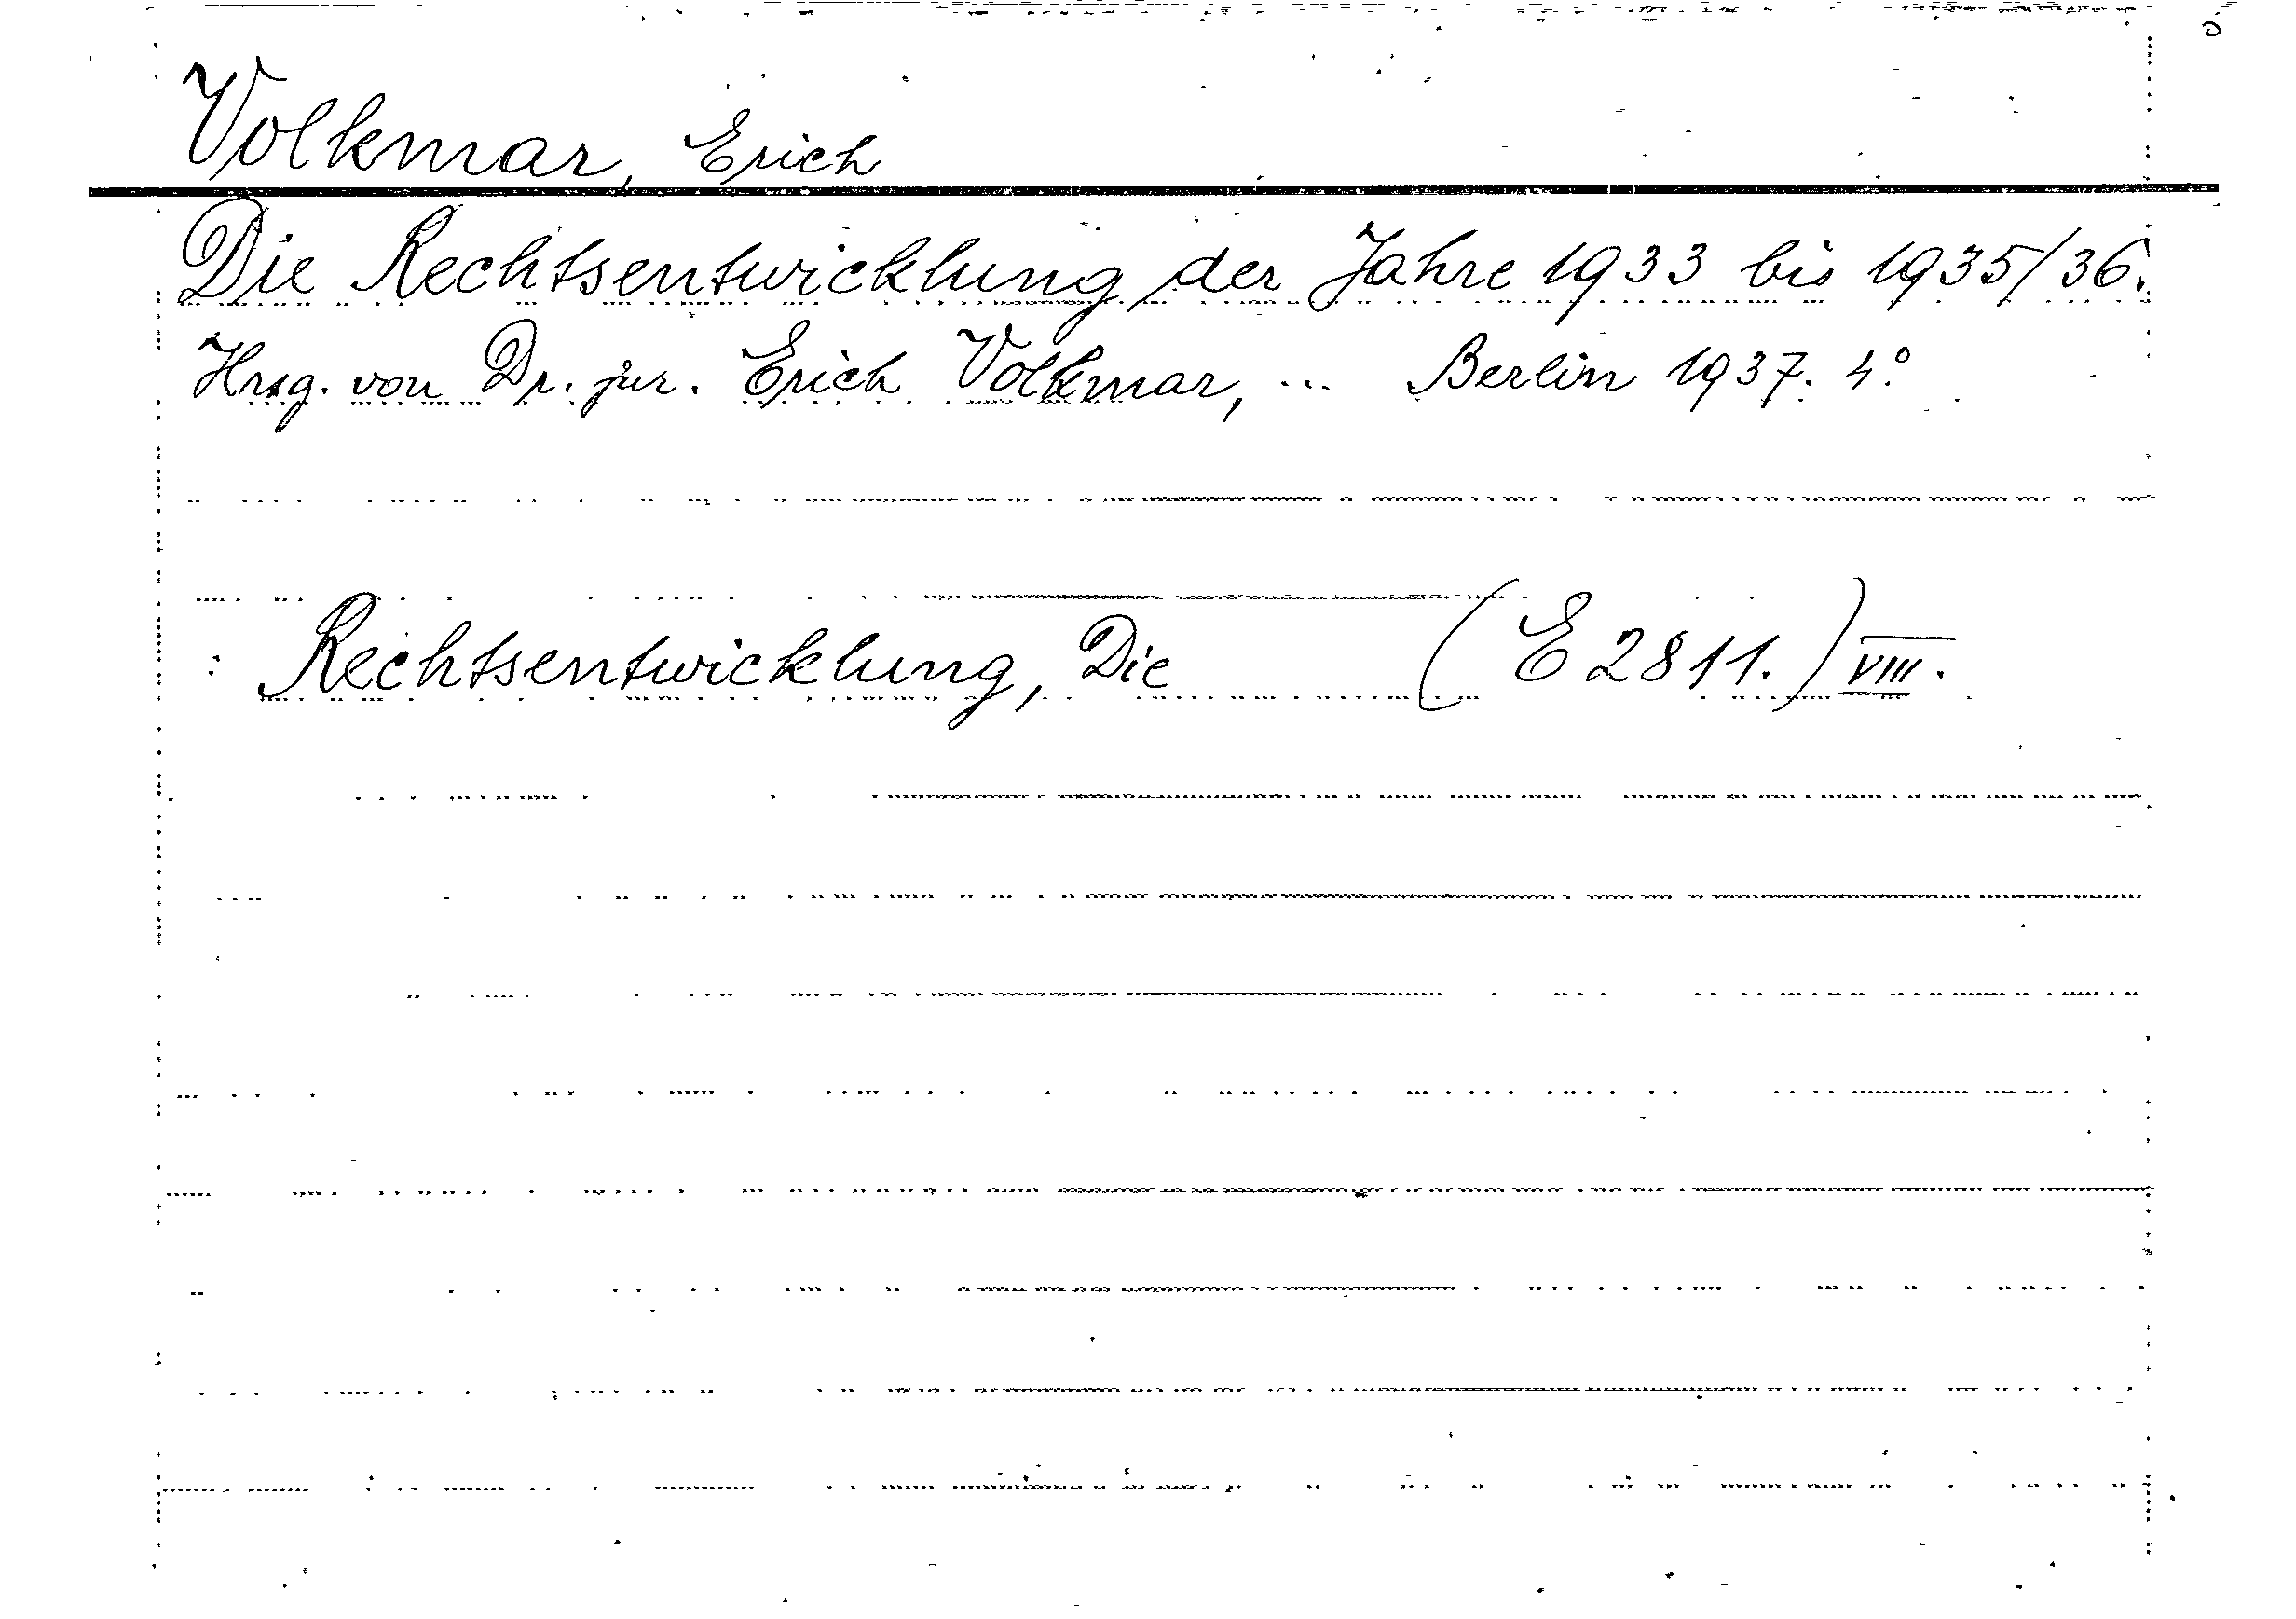 Volkmar, Erich
Die Rechtsentwicklung der Jahre 1933 bis 1935/36.
Hrsg. von Dr. jur. Erich Volkmar, ... Berlin 1937. 4°
: Rechtsentwicklung, Die (E 2811.) VIII.